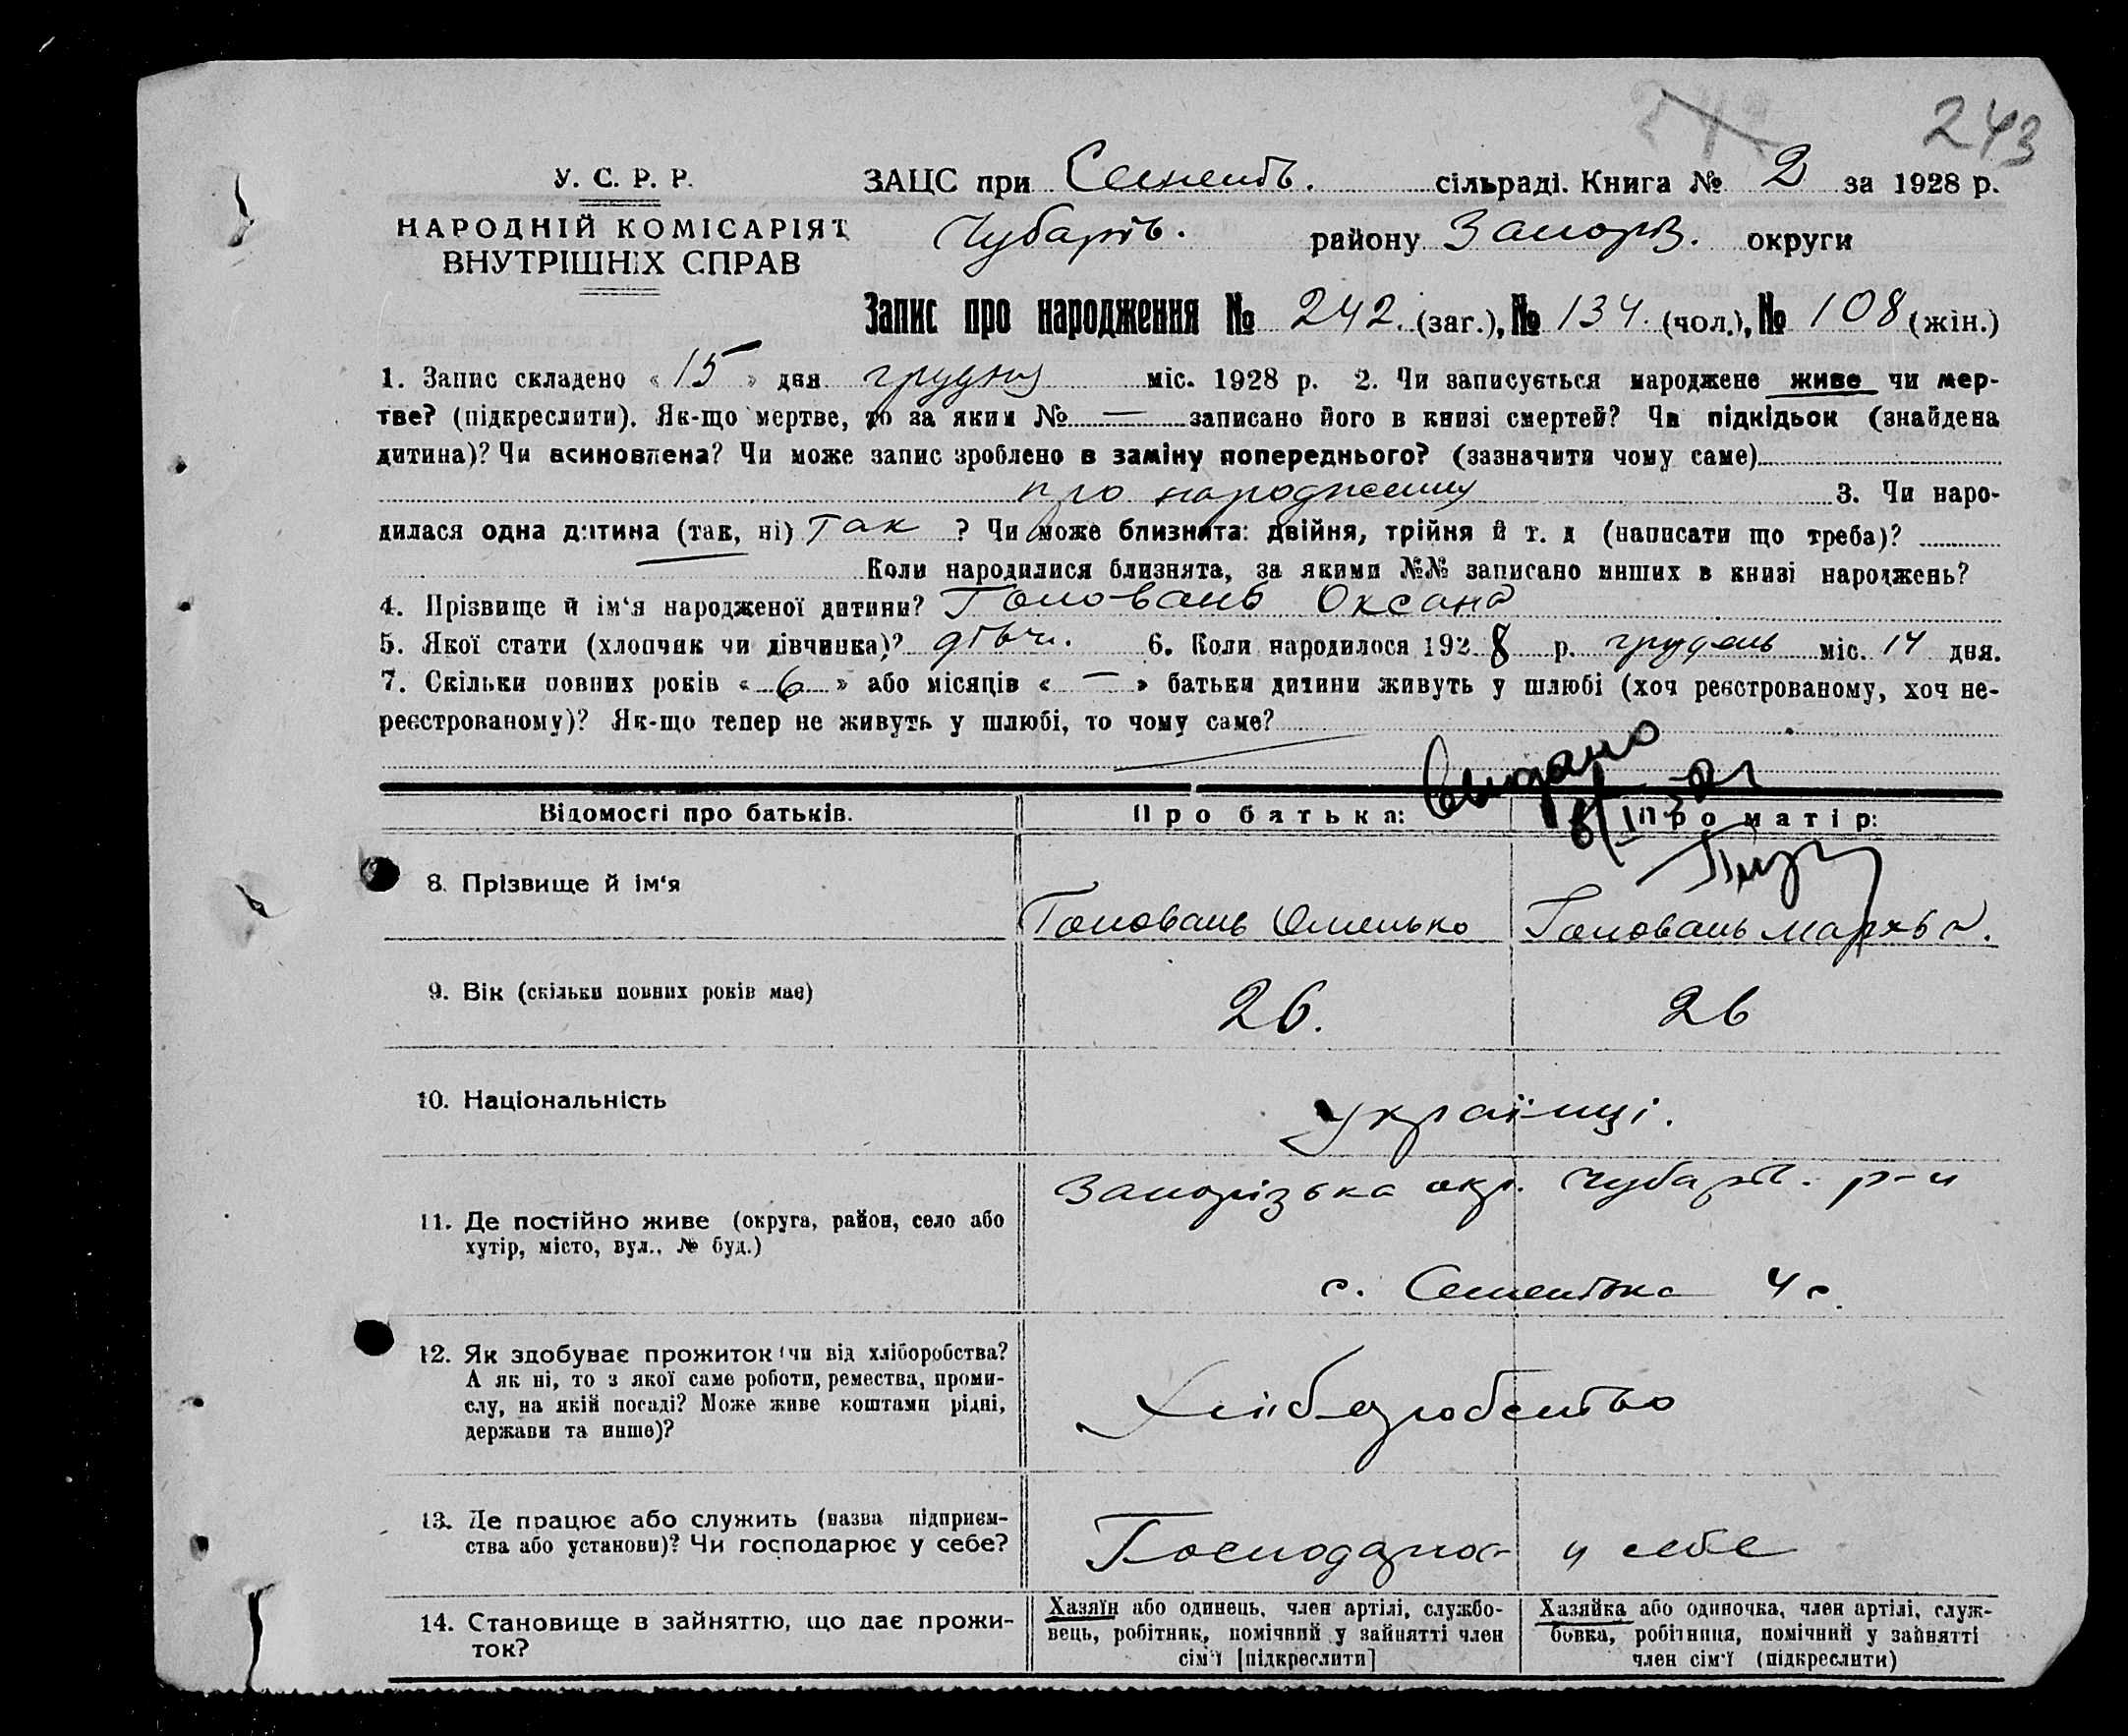 243
У. С. Р. Р.
НАРОДНІЙ КОМІСАРІЯТ
ВНУТРІШНІХ СПРАВ
ЗАЦС при Семенів. сільраді. Книга № 2 за 1928 р.
Чубарів. району Запоріз. округи
Запис про народження № 242. (заг.), № 134. (чол.), № 108 (жін.)
1. Запис складено « 15 » дня грудня міс. 1928 р. 2. Чи записується народжене живе чи мер-
тве? (підкреслити). Як-що мертве, то за яким № — записано його в книзі смертей? Чи підкідьок (знайдена
дитина)? Чи всиновлена? Чи може запис зроблено в заміну попереднього? (зазначити чому саме)
про народження 3. Чи наро-
дилася одна дитина (так, ні) Так ? Чи може близнята: двійня, трійня й т. д (написати що треба)?
Коли народилися близнята, за якими №№ записано инших в книзі народжень?
4. Прізвище й ім‘я народженої дитини? Головань Оксана
5. Якої стати (хлопчик чи дівчинка)? дівч. 6. Коли народилося 1928 р. грудень міс. 14 дня.
7. Скільки повних років « 6 » або місяців « — » батьки дитини живуть у шлюбі (хоч реєстрованому, хоч не-
реєстрованому)? Як-що тепер не живуть у шлюбі, то чому саме?
Відомості про батьків. Про батька: Про матір:
8. Прізвище й ім‘я
Головань Омелько Головань Мархва.
9. Вік (скільки повних років має) 26. 26
10. Національність українці.
Запорізька окр. Чубарів. р-н
11. Де постійно живе (округа, район, село або
хутір, місто, вул., № буд.)
с. Семенівка 4 с.
12. Як здобуває прожиток (чи від хліборобства?
А як ні, то з якої саме роботи, ремества, проми-
слу, на якій посаді? Може живе коштами рідні,
держави та инше)?
Хліборобство
13. Де працює або служить (назва підприєм-
ства або установи)? Чи господарює у себе?
Господарює у себе
14. Становище в зайняттю, що дає прожи-
ток?
Хазяїн або одинець, член артілі, службо-
вець, робітник, помічний у зайнятті член
сім‘ї [підкреслити]
Хазяйка або одиночка, член артілі, служ-
бовка, робітниця, помічний у зайнятті
член сім‘ї (підкреслити)